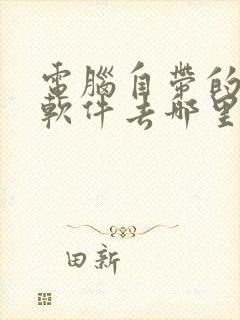 電腦自帶的
軟件去哪里
田新